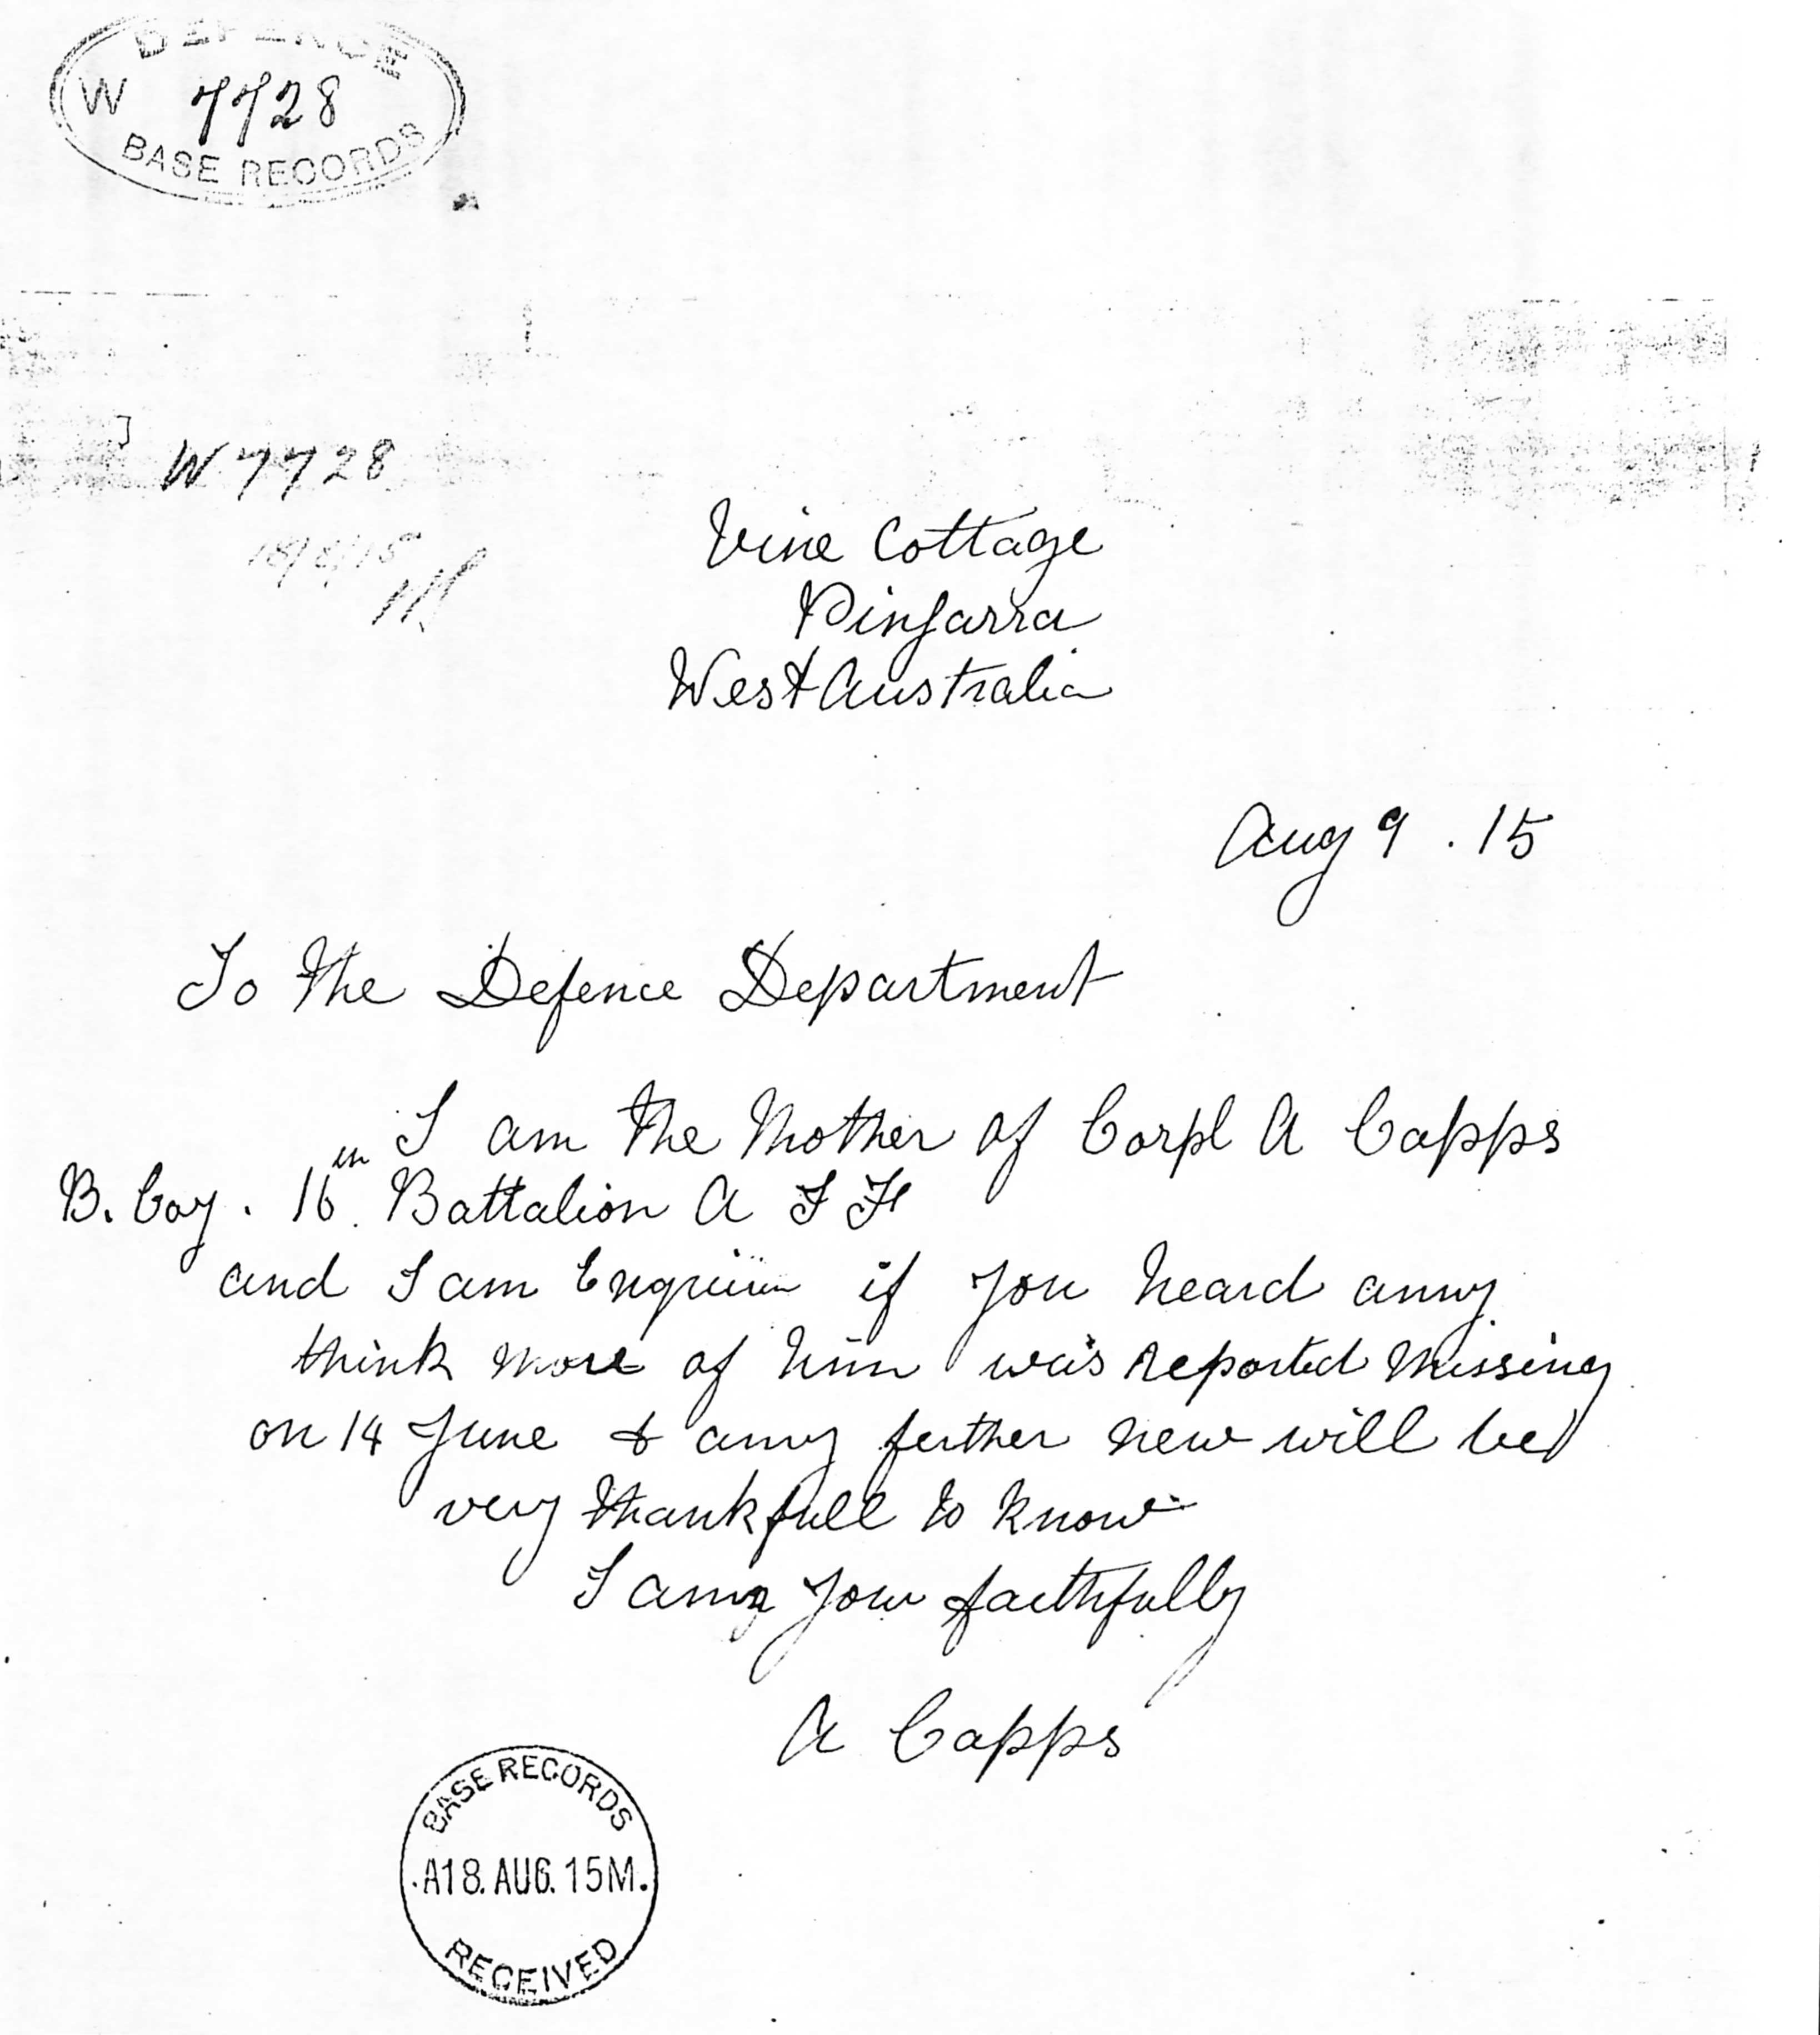 DEFENCE
W 7728
BASE RECORDS
W 7728
18/8/15
Vine Cottage
Pinjarra
West Australia
Aug 9 . 15
To the Defence Department
I am the Mother of Corpl A Capps
B. Coy. 16th Battalion A I F
and I am if you heard anny
think more of him was reported missing
on 14 June & anny ferther new will be
very thankfull to know
I am your faithfully
A Capps
BASE RECORDS
A18.AUG.15M.
RECEIVED